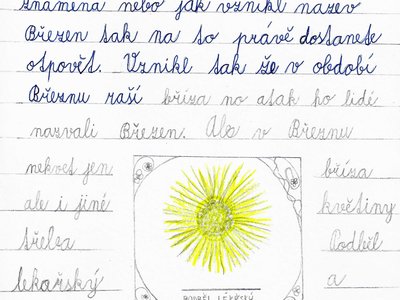 znamená nebo jak vznikl název
Březen tak na to právě dostanete
otpovět. Vznikl tak že v období
Březnu raší bříza no atak ho lidé
nazvali Březen. Ale v Březnu
nekvet jen bříza
ale i jiné květiny
třeba Podběl
lekařský a
PODBĚL LÉKAŘSKÝ